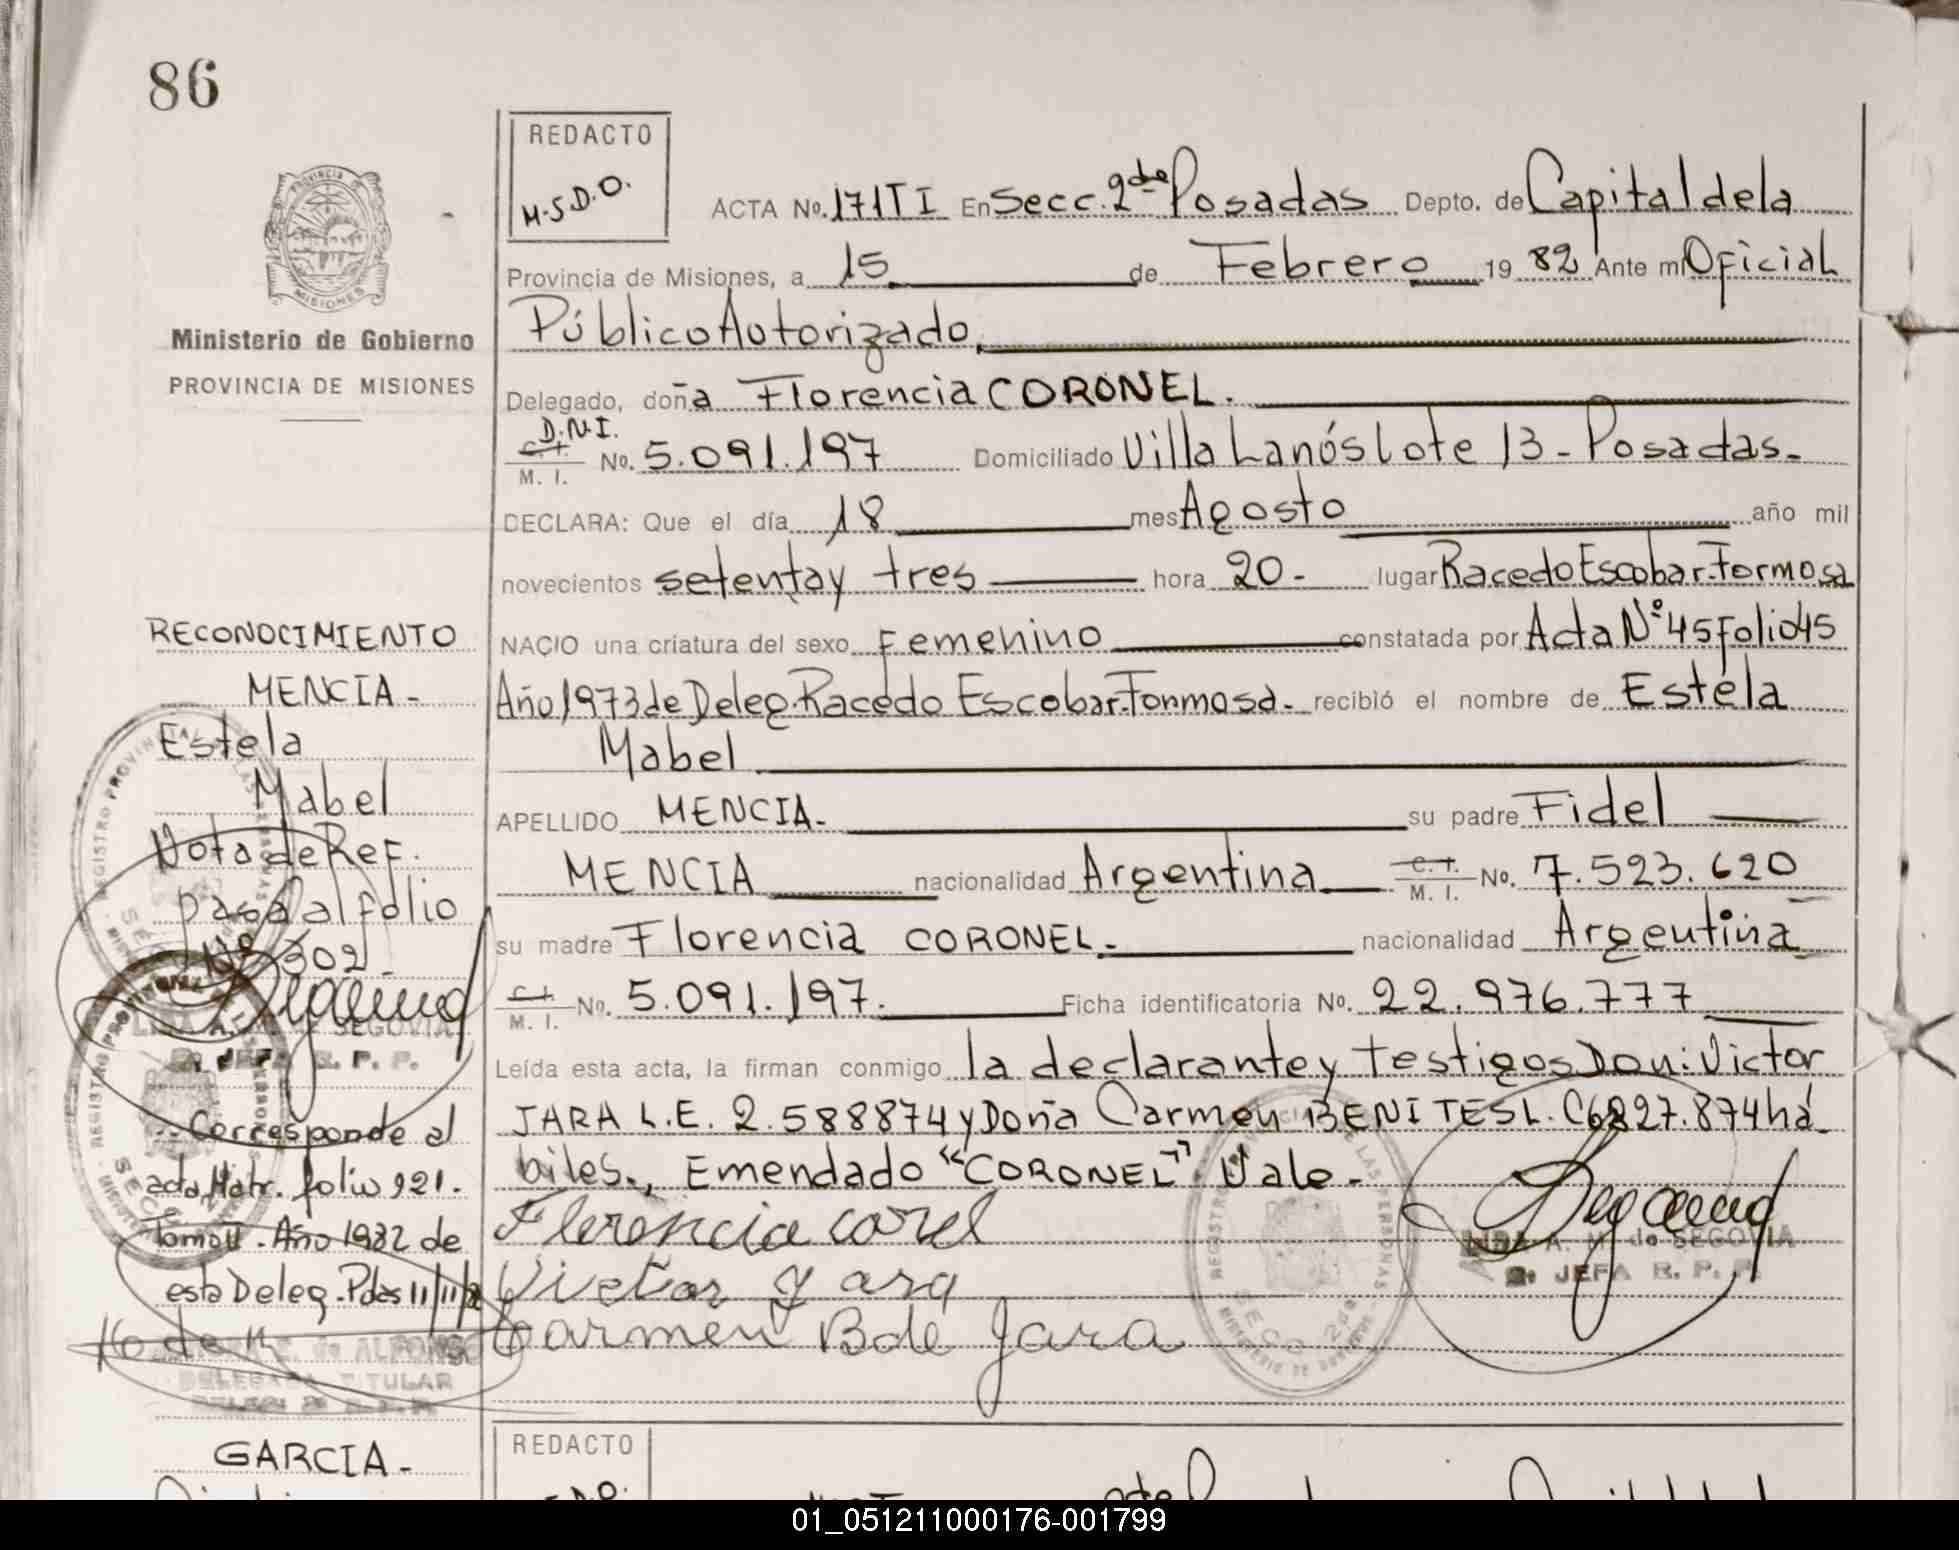 86
REDACTO
M.S.D.O.
PROVINCIA DE
MISIONES
Ministerio de Gobierno
PROVINCIA DE MISIONES
ACTA No. 171 T I En Secc. 2da Posadas Depto. de Capital de la
Provincia de Misiones, a 15 de Febrero 19 82 Ante mi Oficial
Público Autorizado.
Delegado, doña Florencia CORONEL.
D.N.I.
C.I. M. I. No. 5.091.197 Domiciliado Villa Lanós Lote 13 - Posadas.
DECLARA: Que el día 18 mes Agosto año mil
novecientos setenta y tres hora 20- lugar Racedo Escobar-Formosa
NACIO una criatura del sexo Femenino constatada por Acta Nº 45 Folio 45
Año 1973 de Deleg. Racedo Escobar-Formosa. recibió el nombre de Estela
Mabel
APELLIDO MENCIA. su padre Fidel
MENCIA nacionalidad Argentina C.I. M. I. No. 7.523.620
su madre Florencia CORONEL. nacionalidad Argentina
C.I. M. I. No. 5.091.197. Ficha identificatoria No. 22.976.777
Leída esta acta, la firman conmigo la declarante y testigos Don: Victor
JARA L.E. 2.588874 y Doña Carmen BENITES L.C 6827.874 há
biles., Emendado "CORONEL" Vale.
Florencia corel
Victor Jara
Carmen B de Jara
A. M. de SEGOVIA
JEFA R. P. P.
RECONOCIMIENTO
MENCIA-
Estela
Mabel
Nota de Ref.
pasa al folio
Nº 302
SEGOVIA
JEFA R. P. P.
Corresponde al
acta Matr. folio 921.
Tomo II. Año 1982 de
esta Deleg. Pdas 11/11/82
de ALFONSO
DELEGADA TITULAR
GARCIA-
REDACTO
01_051211000176-001799